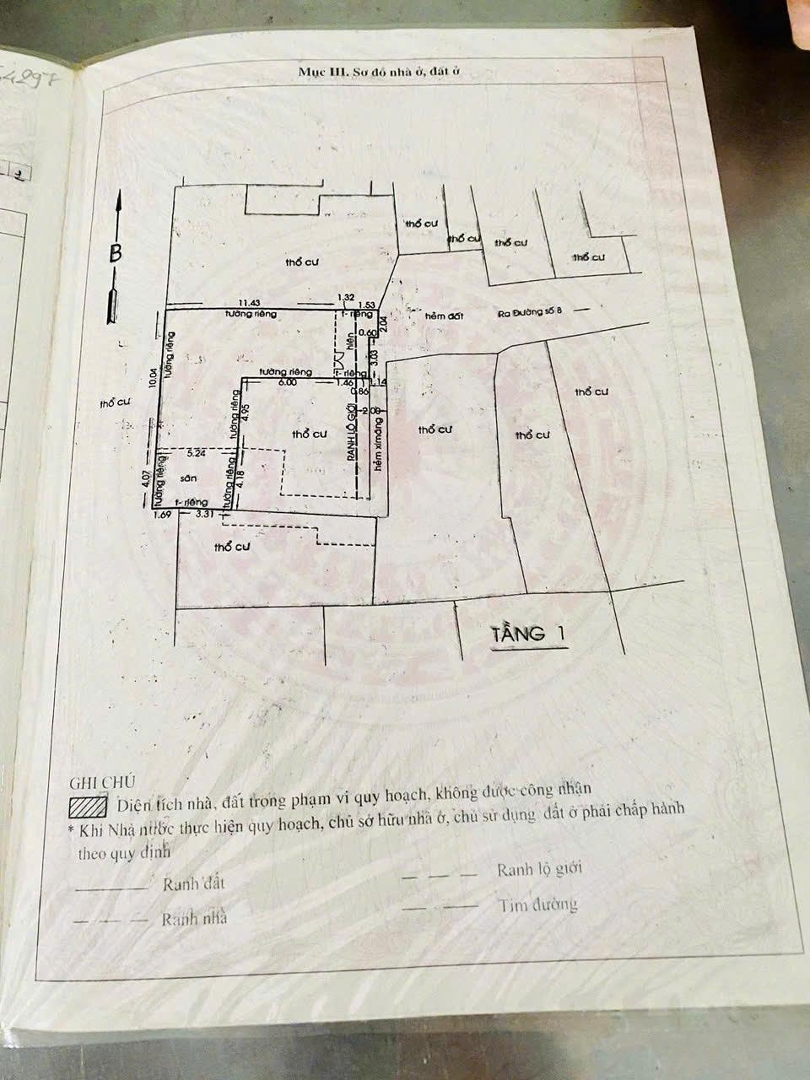 Mục III. Sơ đồ nhà ở, đất ở
B
thổ cư
thổ cư
thổ cư
thổ cư
thổ cư
11.43
1.32
1.53
tường riêng
t- riêng
hẻm đất
Ra Đường số 8
2.04
0.60
hiên
3.03
tường riêng
10.04
tường riêng
6.00
t- riêng
1.46
1.14
0.86
thổ cư
tường riêng
4.95
thổ cư
RANH LỘ GIỚI
2.08
hẻm ximăng
thổ cư
thổ cư
thổ cư
5.24
sân
4.07
tường riêng
tường riêng
4.18
t- riêng
1.69
3.31
thổ cư
TẦNG 1
GHI CHÚ
Diện tích nhà, đất trong phạm vi quy hoạch, không được công nhận
* Khi Nhà nước thực hiện quy hoạch, chủ sở hữu nhà ở, chủ sử dụng đất ở phải chấp hành
theo quy định
Ranh đất
Ranh lộ giới
Ranh nhà
Tim đường